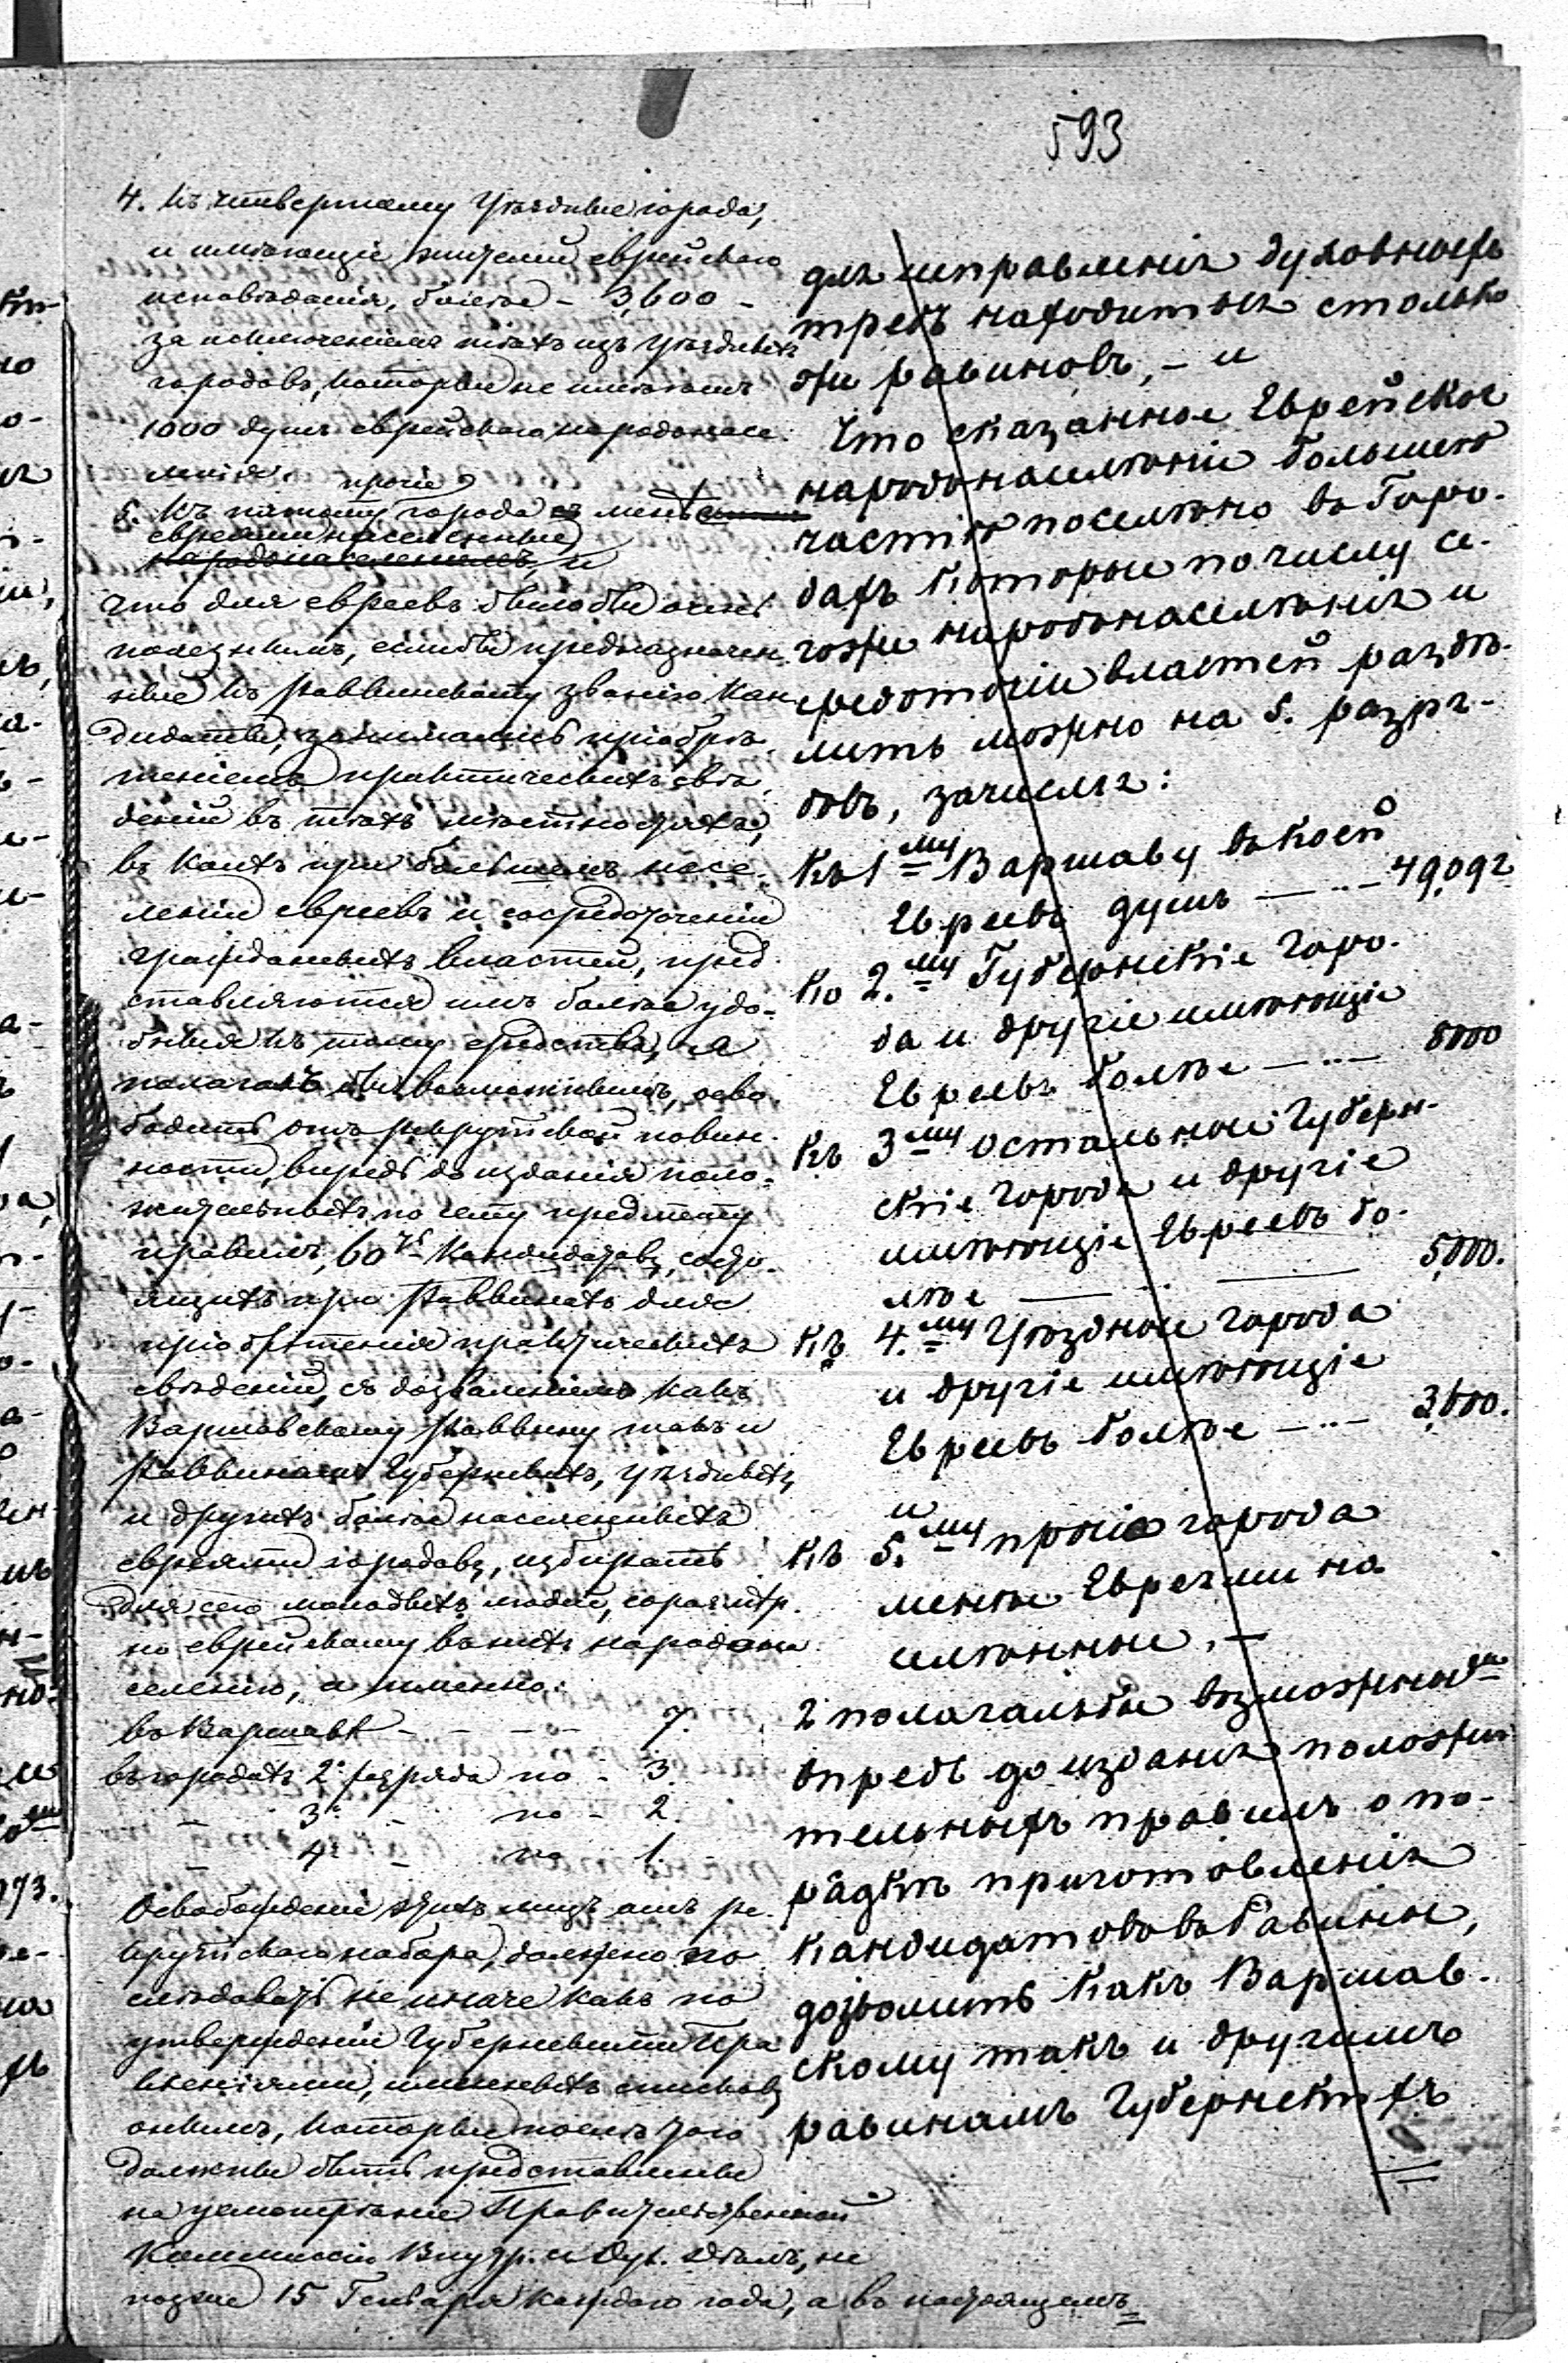 593
4. Къ четвертому Уѣздные города,
и имѣющіе жителей еврейскаго
исповѣданія, болѣе - 3,600 -
за исключеніемъ тѣхъ изъ Уѣздныхъ
городовъ, которые не имѣютъ
1000 душъ еврейскаго народонасе-
ленія.
прочіе
5. Къ пятому города съ менѣе
евреями населенные,
народонаселеніемъ, и
что для евреевъ было бы очень
полезнымъ, если бы предназначен-
ные къ раввинскому званію Кан-
дидаты, занимались пріобрѣ-
теніемъ практическихъ свѣ-
деній въ тѣхъ мѣстностяхъ,
въ коихъ при большемъ насе-
леніи евреевъ и сосредоточеніи
гражданскихъ властей, пред-
ставляются имъ болѣе удо-
бныя къ тому средства, я
полагалъ бы возможнымъ, осво-
бодить отъ рекрутской повин-
ности, впредь до изданія поло-
жительныхъ по сему предмету
правилъ, 60 Кандидатовъ, состо-
ящихъ при Раввинахъ для
пріобрѣтенія практическихъ
свѣдѣній, съ дозволеніемъ какъ
Варшавскому Раввину такъ и
Раввинамъ Губернскихъ, Уѣздныхъ
и другихъ болѣе населенныхъ
евреями городовъ, избирать
для сего молодыхъ людей, соразмѣр-
но еврейскому въ нихъ народона-
селенію, а именно:
въ Варшавѣ - - - - 7.
въ городахъ 2. разряда по - 3.
- 3. - по - 2.
- 4. - по - 1.
Освобожденіе этихъ лицъ отъ ре-
крутскаго набора, должно по-
слѣдовать не иначе какъ по
утвержденіи Губернскими Пра-
вленіями, именныхъ списковъ
онымъ, которые послѣ того
должны быть представлены
на усмотрѣніе Правительственной
Коммиссіи Внутр. и Дух. Дѣлъ, не
позже 15 Генваря каждаго года, а въ настоящемъ
для исправленія духовныхъ
требъ находится столько
же равиновъ, - и
Что сказанное Еврейское
народонаселѣніе большею
частію поселѣно въ Горо-
дахъ которые по числу се-
гоже народонаселѣнія и
средоточіи властей раздѣ-
лить можно на 5. разря-
довъ, зачисля:
Къ 1му Варшаву въ коей
Евреевъ душъ — 49,092
Ко 2.му Губернскіе горо-
да и другіе имѣющіе
Евреевъ болѣе — 8000
Къ 3му остальные Губерн-
скіе города и другіе
имѣющіе Евреевъ бо-
лѣе — 5,000.
Къ 4.му Уѣздные города
и другіе имѣющіе
Евреевъ болѣе — 3,600.
и
Къ 5.му прочіе города
менѣе Евреями на-
селѣнные. -
Я полагалъ бы возможнымъ
впредь до изданія положи-
тельныхъ правилъ о по-
рядкѣ приготовленія
кандидатовъ въ Равины,
дозволить какъ Варшав-
скому такъ и другимъ
равинамъ Губернскихъ